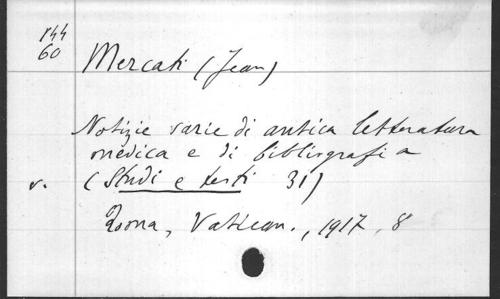 144
60
Mercati (Jean)
Notizie varie di antica letteratura
medica e di bibliografia
v. (Studi e testi 31)
Roma, Vatican., 1917, 8